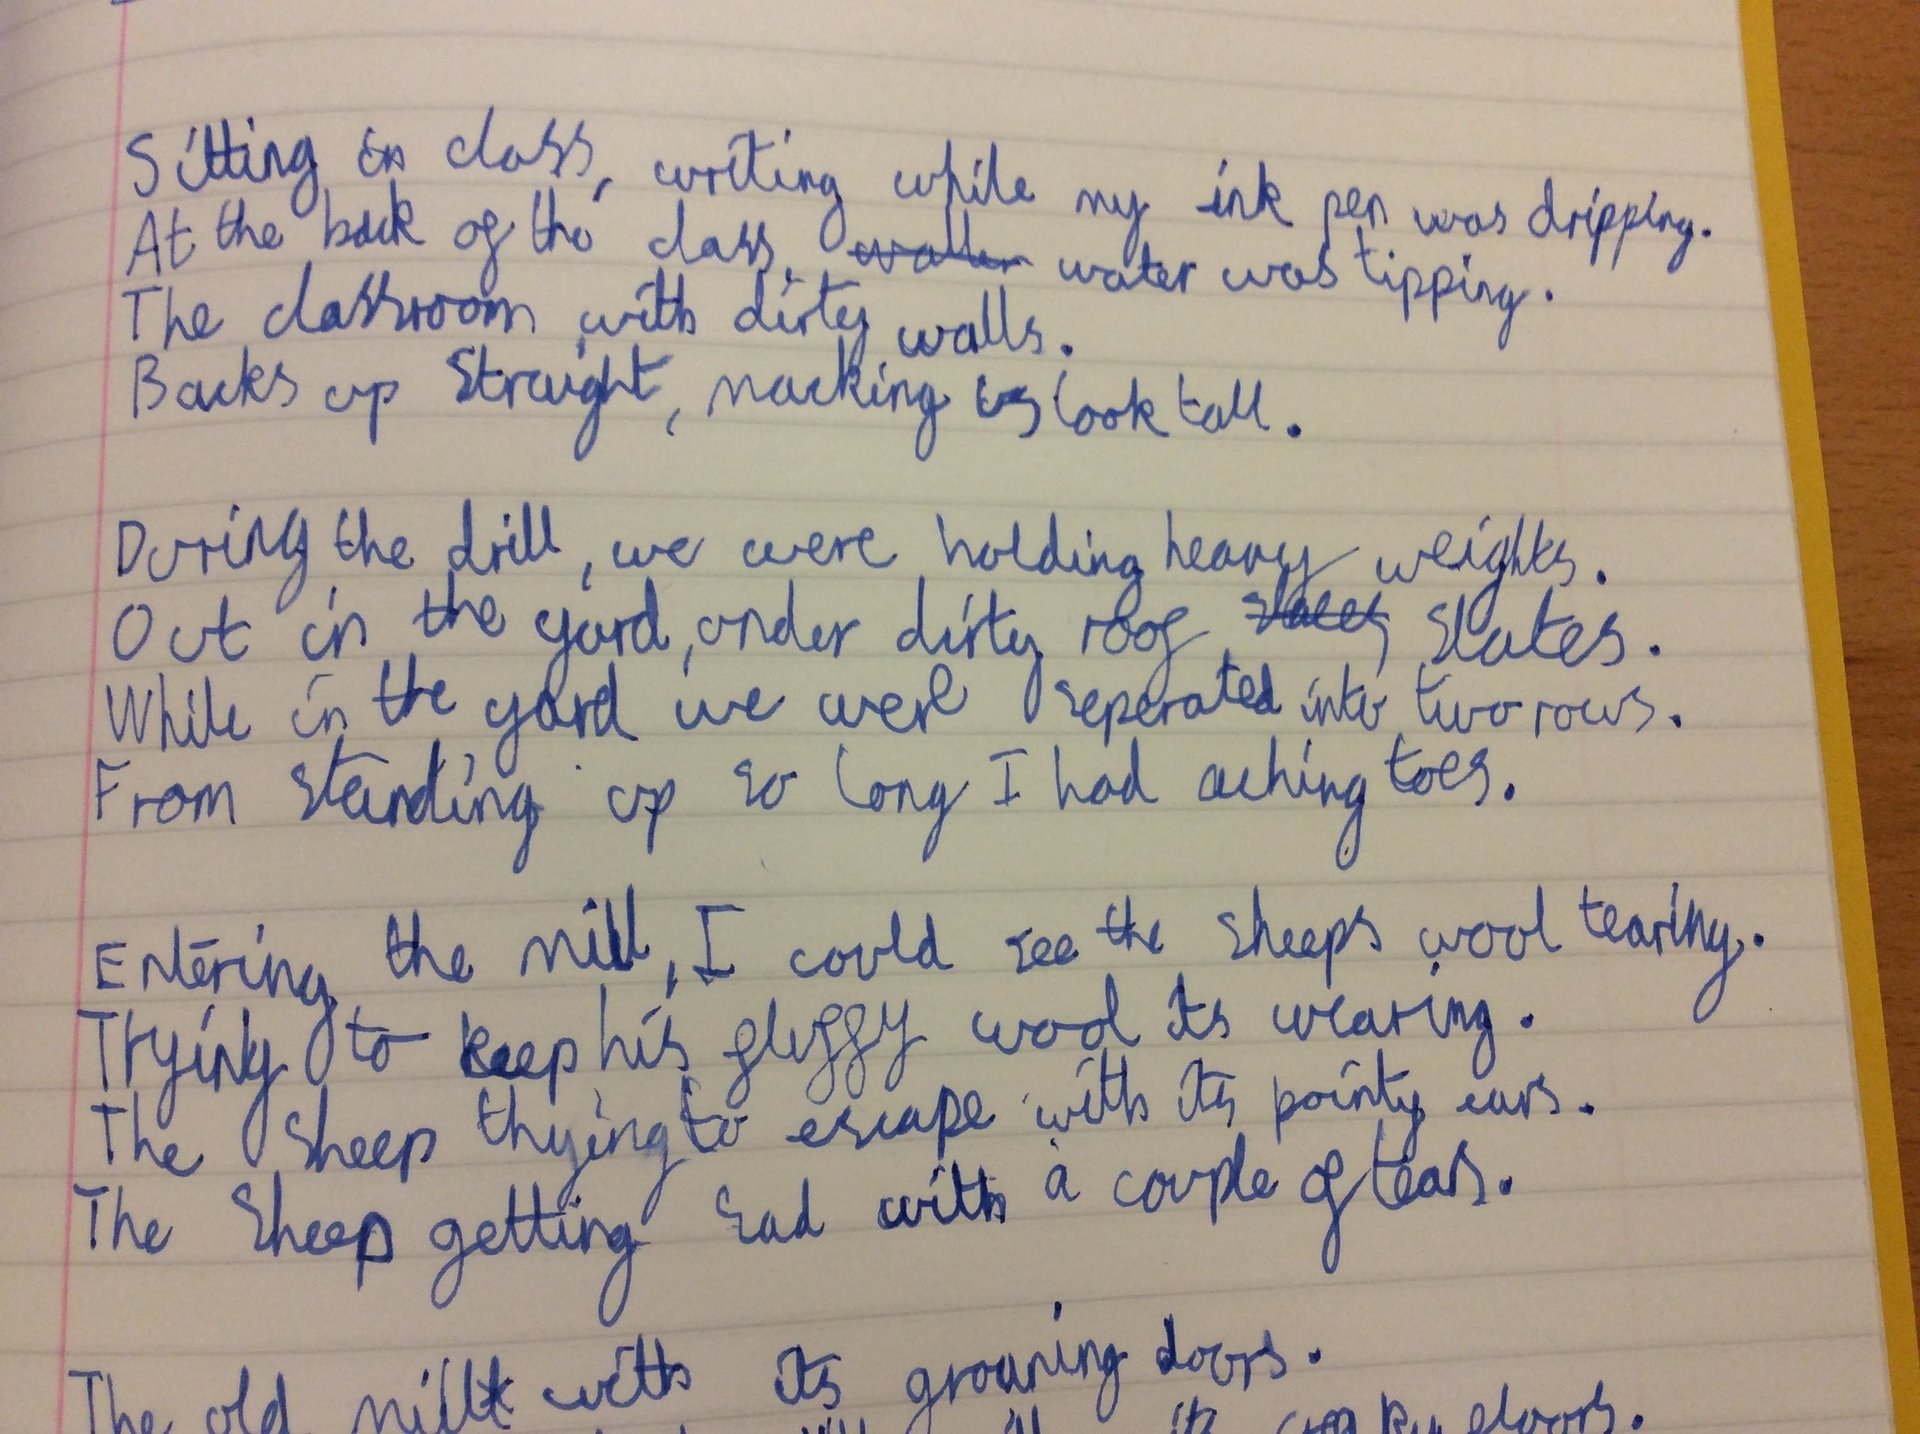 Sitting in class, writing while my ink pen was dripping.
At the back of the class, water was tipping.
The classroom with dirty walls.
Backs up straight, macking us look tall.
During the drill, we were holding heavy weights.
Out in the yard, under dirty roof slates.
While in the yard we were seperated into two rows.
From standing up so long I had aching toes.
Entering the mill, I could see the sheeps wool tearing.
Trying to keep his fluffy wool its wearing.
The sheep thying to escape with its pointy ears.
The sheep getting sad with a couple of tears.
The old mill with its groaning doors.
doors.